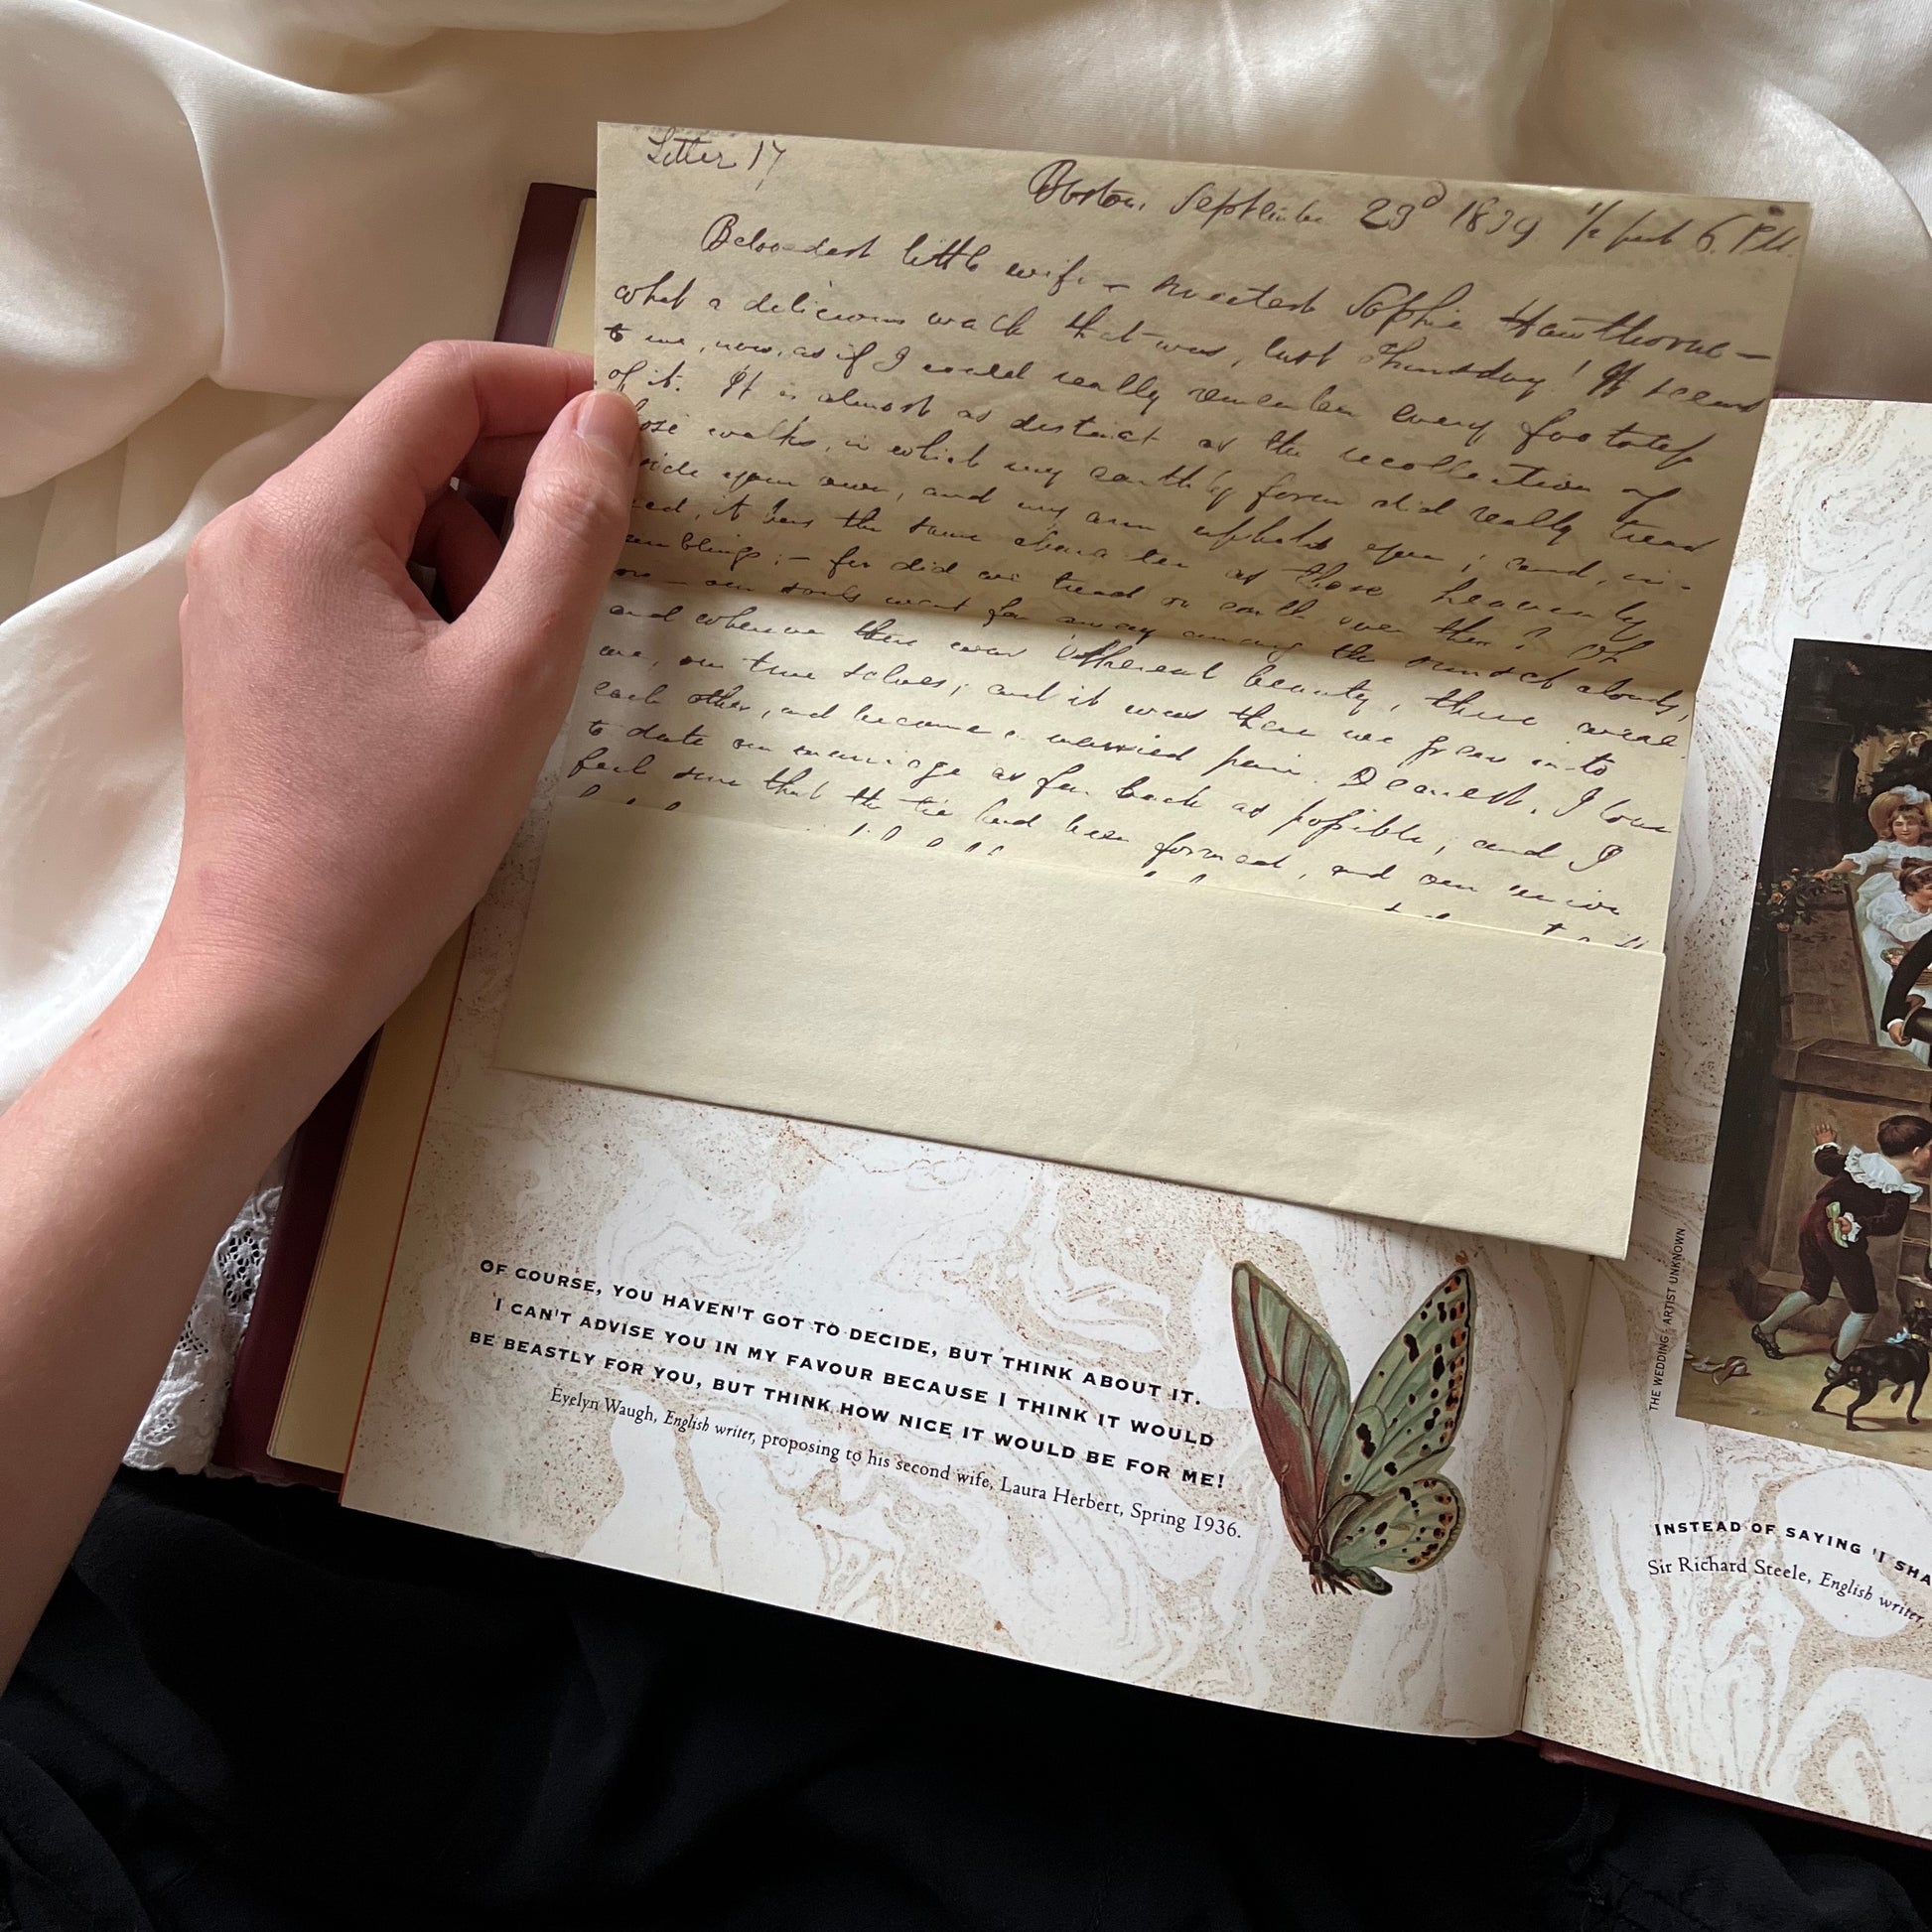 Letter 17
Boston, September 23d 1839 1/2 past 6. P.M.
Belovedest little wife — sweetest Sophie Hawthorne —
what a delicious walk that was, last Thursday! It seems
to me, now, as if I could really remember every footstep
of it. It is almost as distinct as the recollection of
those walks, in which my earthly form did really tread
beside your own, and my arm upheld you; and, in-
deed, it has the same character as those heavenly
ramblings; — for did we tread on earth even then? Oh
no — our souls went far away among the sunset clouds,
and wherever there was ethereal beauty, there were
we, our true selves; and it was there we grew into
each other, and became a married pair. Dearest, I love
to date our marriage as far back as possible, and I
feel sure that the tie had been formed, and our union
OF COURSE, YOU HAVEN'T GOT TO DECIDE, BUT THINK ABOUT IT.
I CAN'T ADVISE YOU IN MY FAVOUR BECAUSE I THINK IT WOULD
BE BEASTLY FOR YOU, BUT THINK HOW NICE IT WOULD BE FOR ME!
Evelyn Waugh, English writer, proposing to his second wife, Laura Herbert, Spring 1936.
THE WEDDING: ARTIST UNKNOWN
INSTEAD OF SAYING 'I SHA
Sir Richard Steele, English writer,